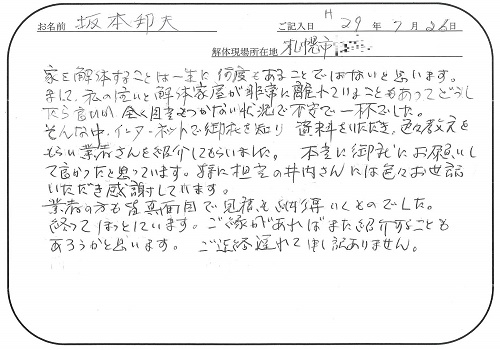 お名前 坂本邦夫 ご記入日 H29年7月26日
解体現場所在地 札幌市
家を解体することは一生に何度もあることではないと思います。
まして、私の住いと解体家屋が非常に離れていることもあってどうし
たら良いか全く見当もつかない状況で不安で一杯でした。
そんな中、インターネットで御社を知り 資料をいただき、色々教えを
もらい業者さんを紹介してもらいました。 本当に御社にお願いし
て良かったと思っています。特に担当の井内さんには色々お世話
いただき感謝しています。
業者の方も真面目で見積も納得いくものでした。
終ってほっとしています。ご縁があればまた紹介することも
あろうかと思います。 ご連絡遅れて申し訳ありません。